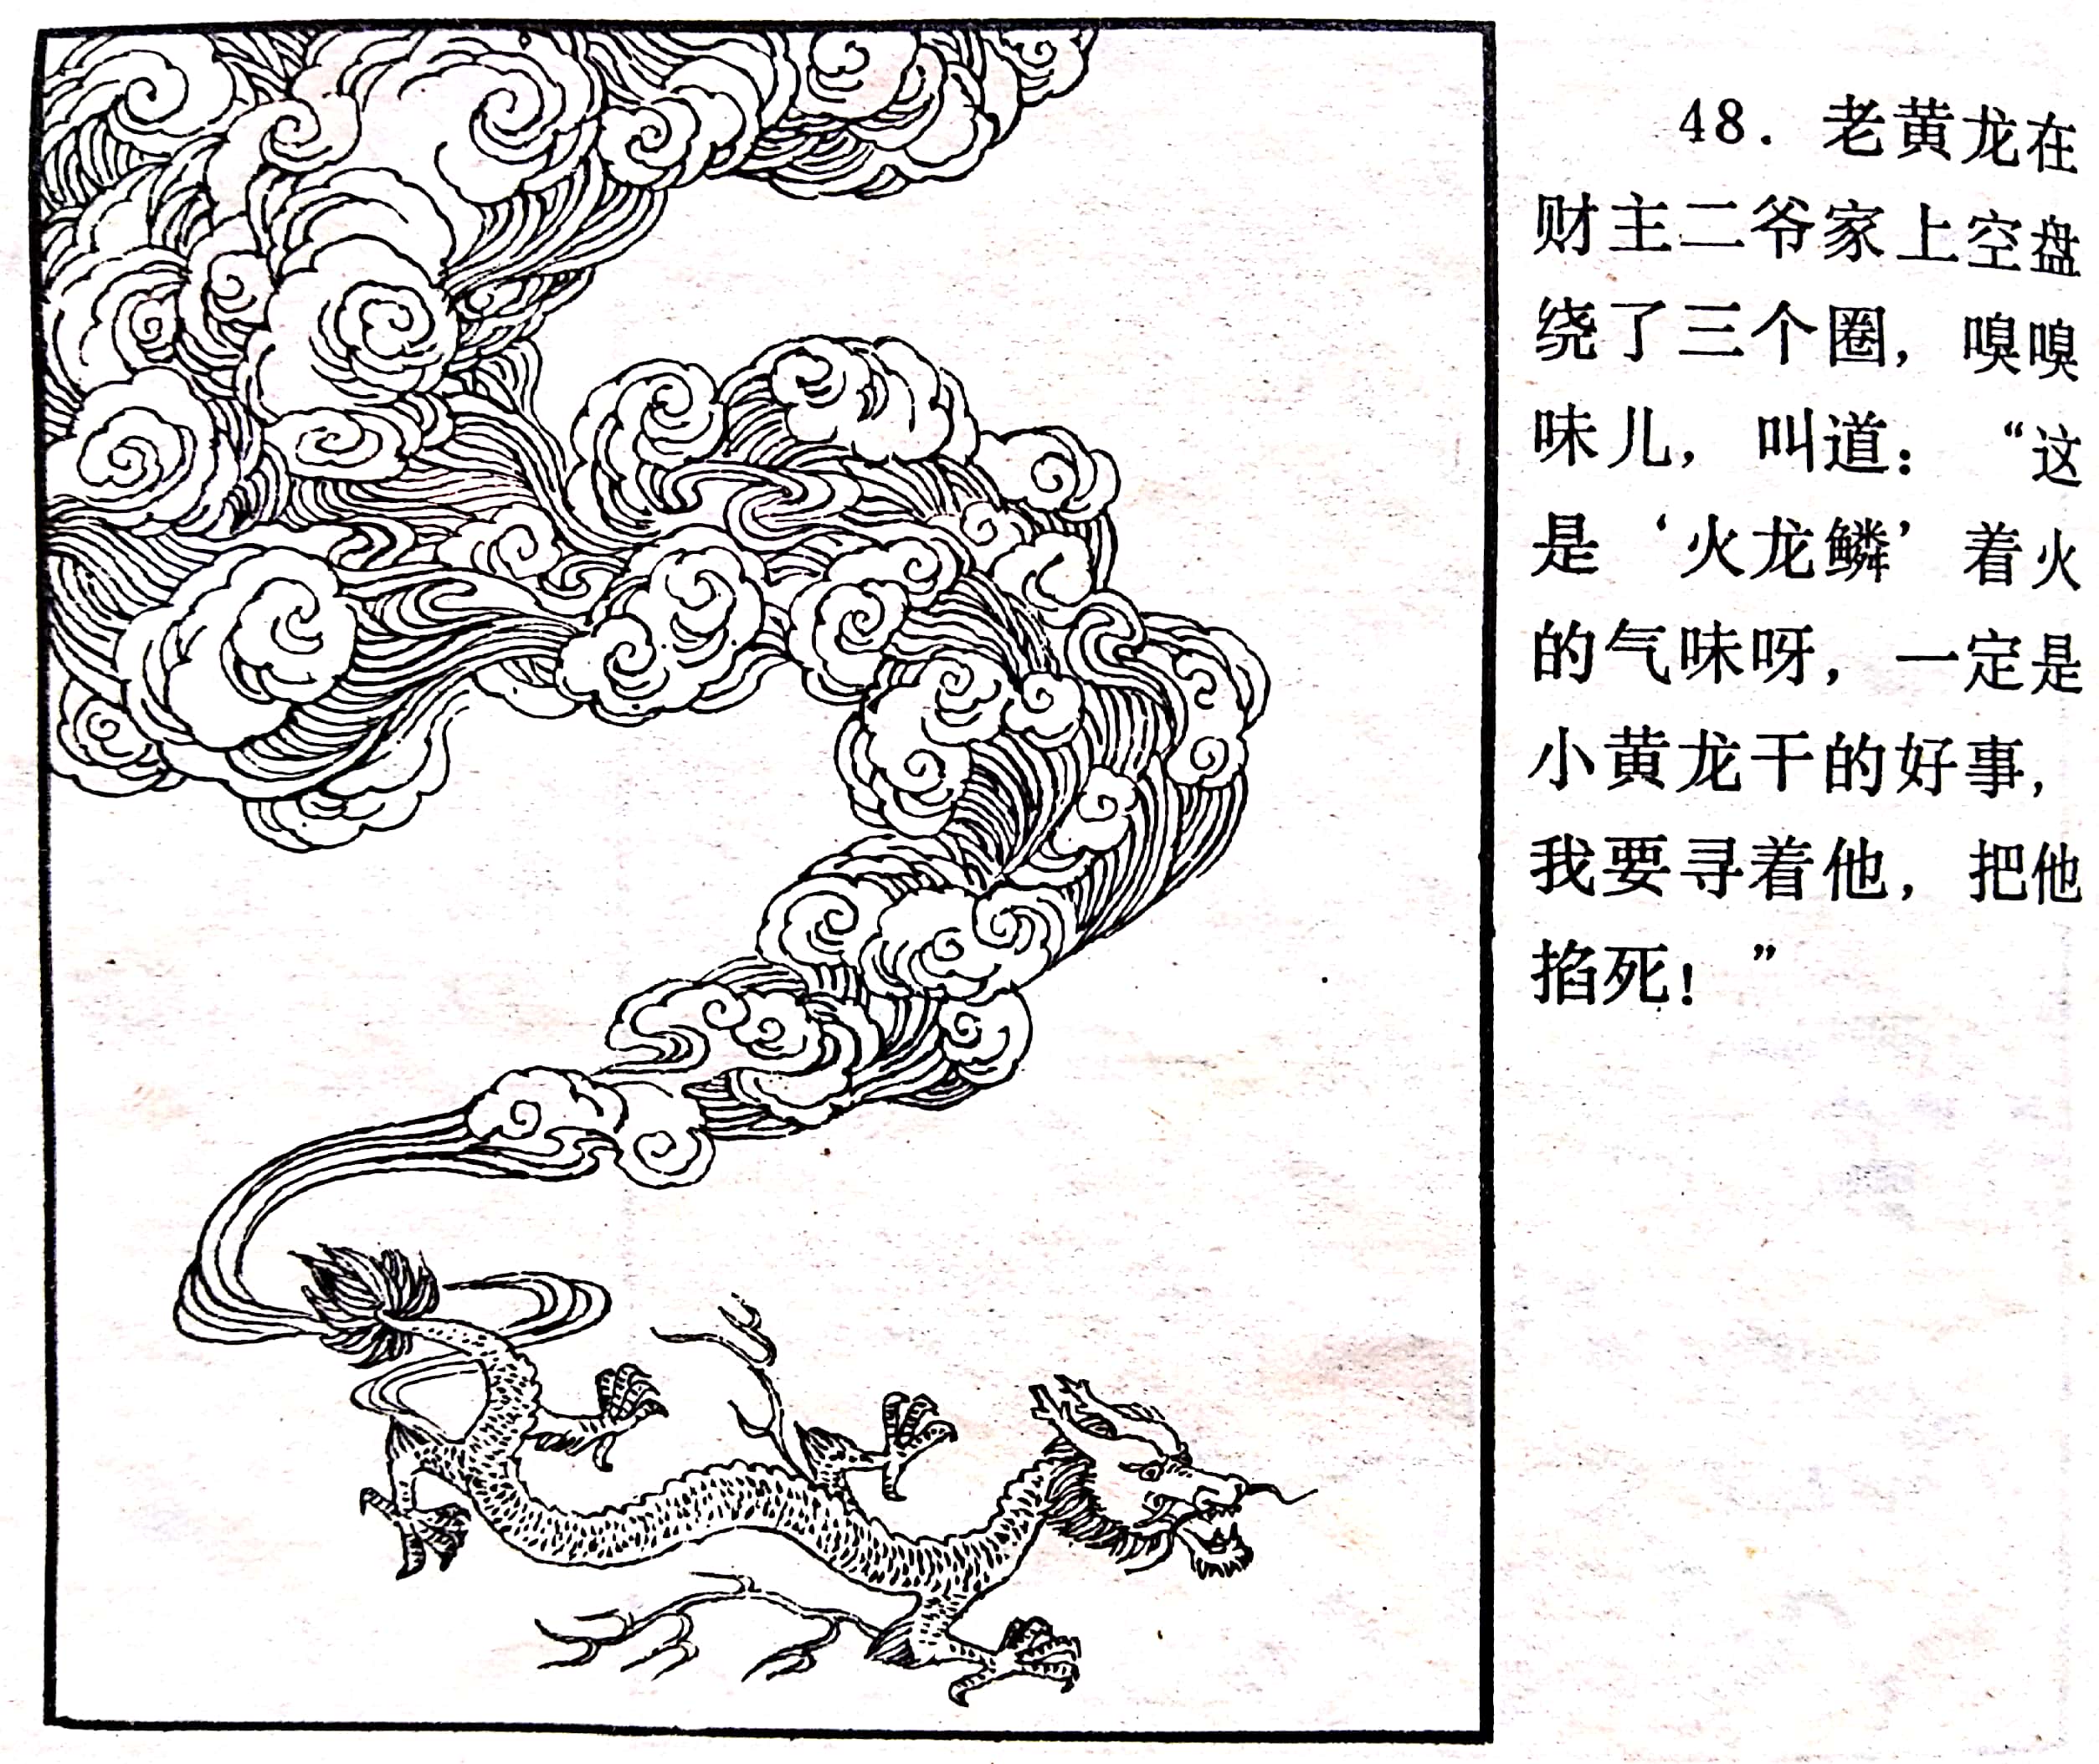 48. 老黄龙在
财主二爷家上空盘
绕了三个圈，嗅嗅
味儿，叫道：“这
是‘火龙鳞’着火
的气味呀，一定是
小黄龙干的好事，
我要寻着他，把他
掐死！”